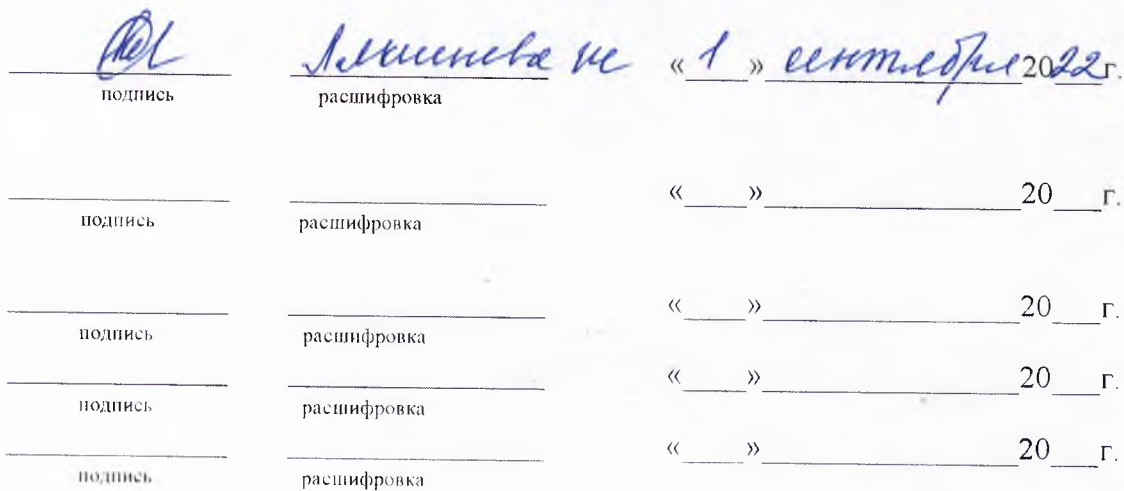 « 1 » сентября 2022г.
подпись расшифровка
« » 20 г.
подпись расшифровка
« » 20 г.
подпись расшифровка
« » 20 г.
подпись расшифровка
« » 20 г.
подпись расшифровка